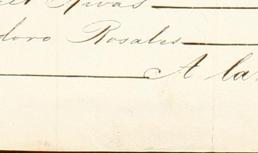 Rivas
doro Rosales
A la